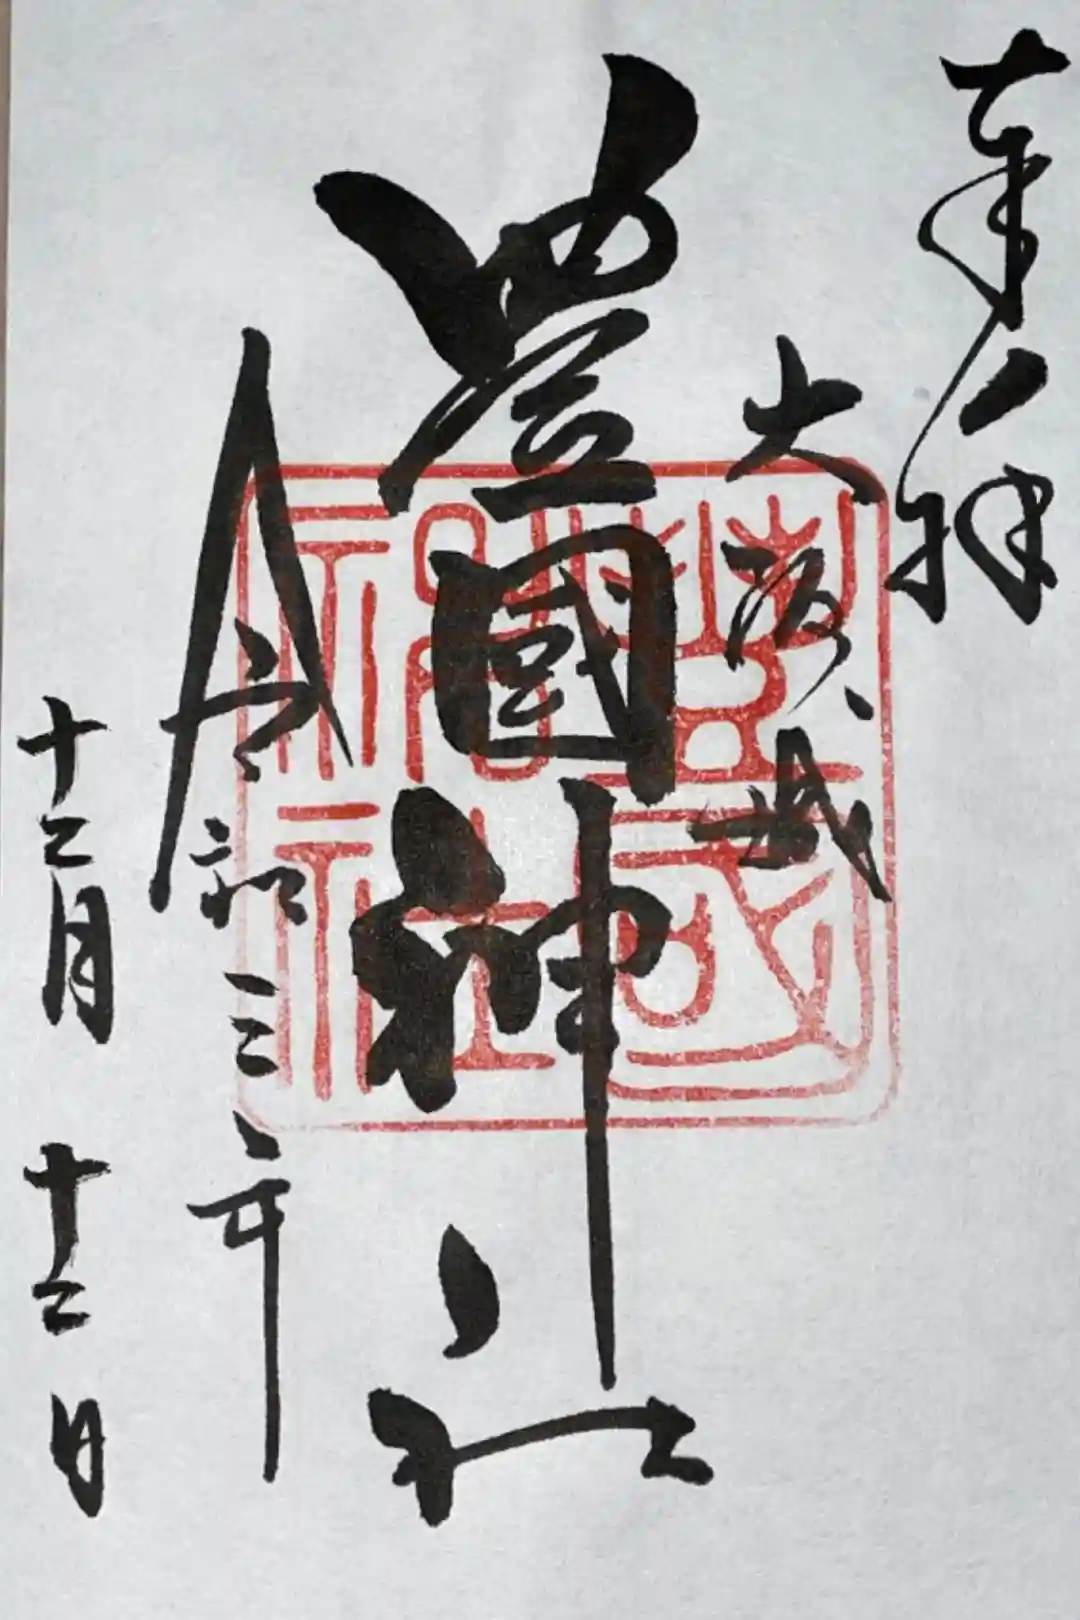 奉拝
大阪城
豊國神社
令和三年
十二月十二日
豊國
神社